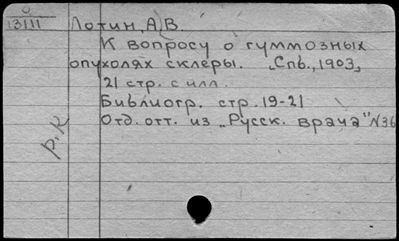 13111
Лотин, А.В.
К вопросу о гуммозных
опухолях склеры. „Спб., 1903„
21 стр. с илл.
Библиогр. стр. 19-21
Отд. отт. из „Русск. врача" №36
р. к